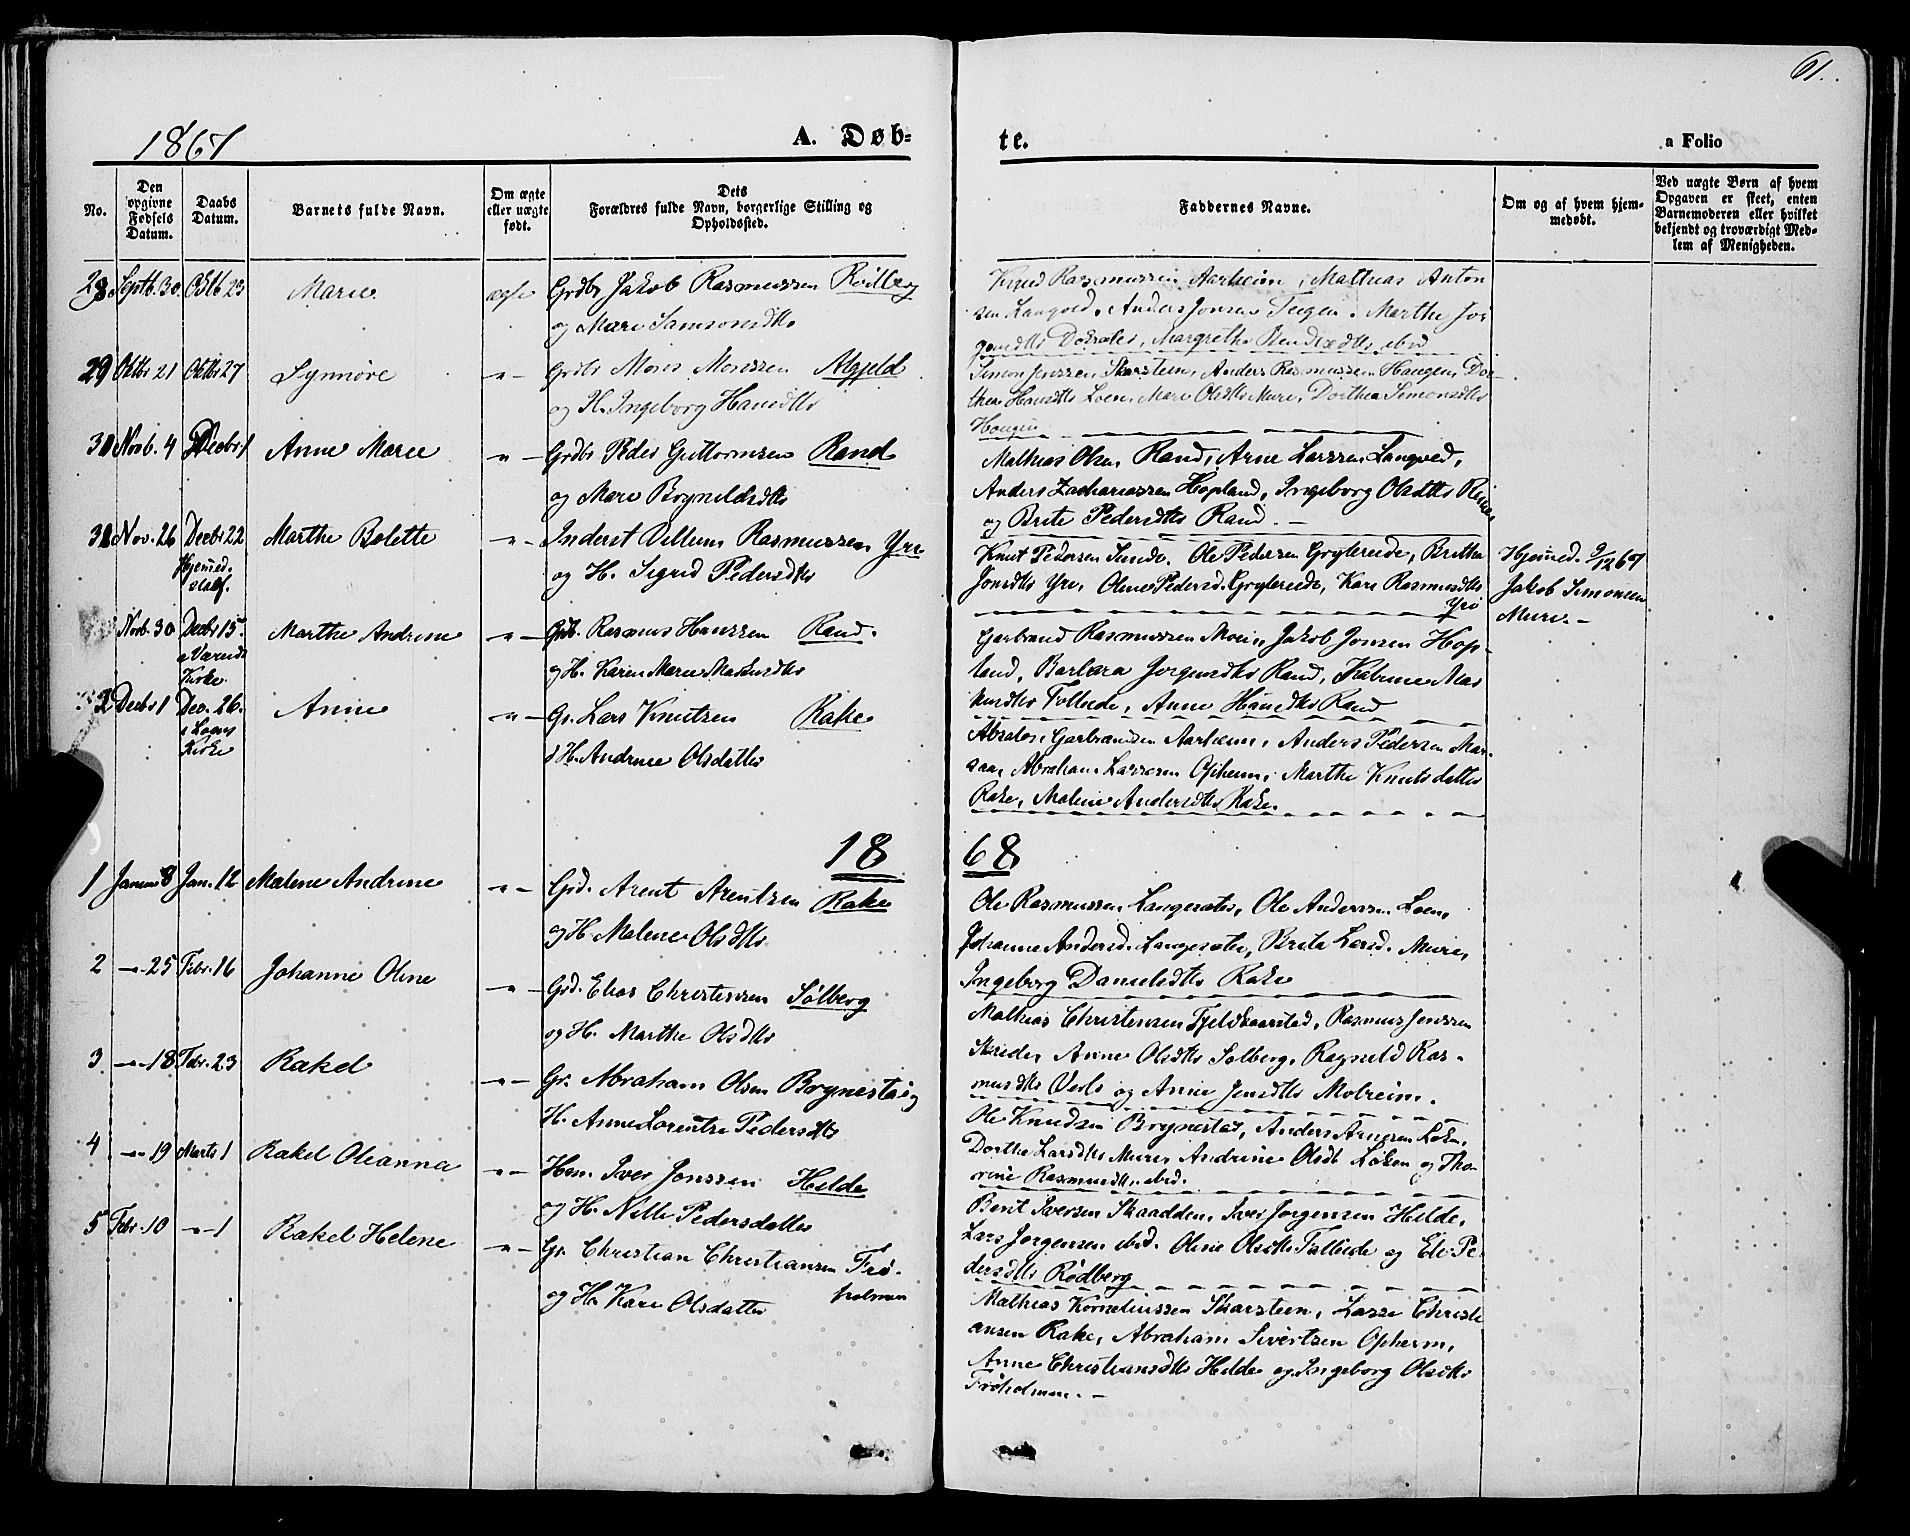 61.
1867
A. Døb-
te.
a Folio
No.
Den opgivne Fødsels Datum.
Daabs Datum.
Barnets fulde Navn.
Om ægte eller uægte født.
Dets Forældres fulde Navn, borgerlige Stilling og Opholdssted.
Faddernes Navne.
Om og af hvem hjemmedøbt.
Ved uægte Børn af hvem Opgaven er skeet, enten Barnemoderen eller hvilket bekjendt og troværdigt Medlem af Menigheden.
28 Septb. 30 Octb 23 Marie ægte Grdbr Jakob Rasmussen Rödberg
og Mari Samsonsdtr
Knud Rasmussen Aarheim, Mathias Anton
sen Langved, Anders Jonsen Teigen, Marthe Jör
gensdtr Margrethe Bendixdtr ibid
29 Oktbr 21 Oktbr 27 Synnöve -"- Grdbr Mons Monssen
og H. Ingeborg Hansdtr
Simon Jenssen Skarstein, Anders Rasmussen Haugen, Dor-
thea Hansdtr Loen, Mari Olsdtr Muri, Dorthea Simonsdtr
Haugen
Novb. 4 Decbr 1 Anne Marie -"- Grdbr Peder Guttormsen Rand
og Mari Brynildsdtr
Mathias Olsen Rand, Arne Larssen Langved,
Anders Zachariassen Hopland, Ingeborg Olsdtr
og Brite Pedersdtr Rand. -
31 Nov. 26 Decbr 22 Marthe Bolette -"- Inderst Villum Rasmussen Yri
Hjemmed.
og H. Sigrid Pedersdtr
Knut Pedersen Sunde, Ole Pedersen Grytereide, Brithe
Jonsdtr Yri, Oline Pedersd. Grytereide, Kari Rasmusdtr
Yri
Hjemmed. 9/12 67
Jakob Simonsen
Muri. -
Novb. 30 Decbr 15. Marthe Andrine -"- Grdb. Rasmus Hanssen Rand.
Kirke
og H. Karen Marie
Garbrand Rasmussen Moen, Jakob Jonsen Hop-
land, Barbara Jörgensdtr Rand, Katrine Mar
Tollede, Anne Hansdtr Rand
Decbr 1 Dec. 26. Anne -"- Gr. Lars Knutsen Rake
i Loens
Kirke
H. Andrine Olsdatter
Absalon Garbrandsen Aarheim, Anders Pedersen Mar-
saa, Abraham Larssen Opheim, Marthe Knutsdatter
Rake, Malene Andersdtr Rake.
18 68
1 Januar 8 Jan. 12 Malene Andrine -"- Grd. Arent Arentsen Rake
og H. Malene Olsdtr
Ole Rasmussen Langesæter, Ole Andersen Loen,
Johanne Andersd. Langesæter, Brite Larsd. Muri,
Ingeborg Danielsdtr Rake
2 -"- 25 Febr. 16 Johanne Oline -"- Grd. Elias Christensen Sölberg
og H. Marthe Olsdtr
Mathias Christensen Fjelskaarstad, Rasmus Jenssen
Skrede, Anne Olsdtr Solberg, Ragnild Ras-
musdtr og Anne Jensdtr Molreim.
3 -"- 18 Febr. 23 Rakel -"- Gr. Abraham Olsen Brynestad og
H. Anne Lorentse Pedersdtr
Ole Knudsen Brynestad, Anders Arnesen Loken,
Dorthe Larsdtr Muri, Andrine Olsdt Loken og Tho-
rine Rasmusdtr ibid.
4 -"- 19 Marts 1 Rakel Oleanna -"- Hsm. Iver Jonssen Hilde
og H. Nille Pedersdatter
Berit Iversen Skaadden, Iver Jorgensen Hilde,
Lars Jorgensen ibid. Oline Olsdtr Tollede og Eli Pe-
dersdtr Rödberg
5 Febr. 10 -"- 1 Rakel Helene -"- Gr. Christian Christiansen Frö-
holmen
og H. Kari Olsdatter
Mathias Korneliussen Skarstein, Lasse Christi
ansen Rake, Abraham Sivertsen Opheim,
Anne Christiansdtr Hilde og Ingeborg Olsdtr
Fröholmen. -